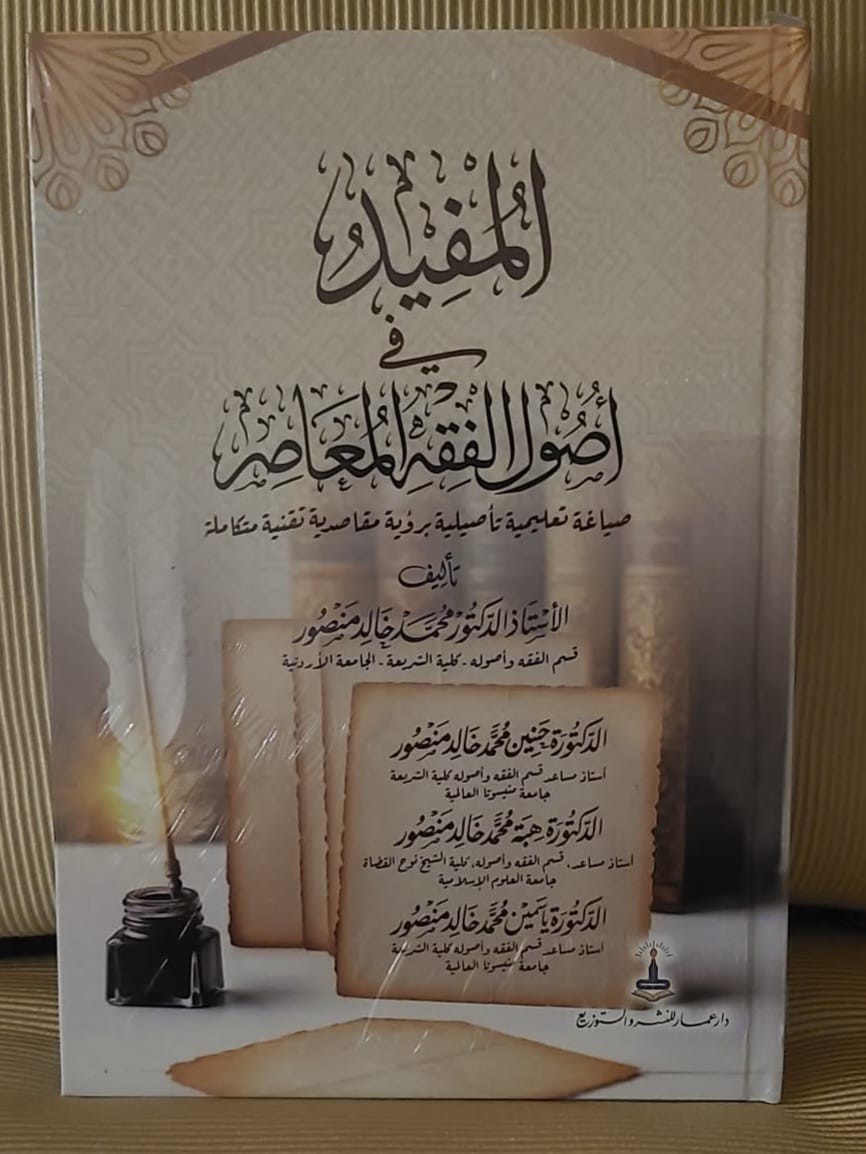 المُفِيدُ
في
أُصُولِ الفِقْهِ المُعَاصِرِ
صياغة تعليمية تأصيلية برؤية مقاصدية تقنية متكاملة
تأليف
الأستاذ الدكتور محمد خالد منصور
قسم الفقه وأصوله - كلية الشريعة - الجامعة الأردنية
الدكتورة حنين محمد خالد منصور
أستاذ مساعد قسم الفقه وأصوله كلية الشريعة
جامعة منيسوتا العالمية
الدكتورة هبة محمد خالد منصور
أستاذ مساعد، قسم الفقه وأصوله، كلية الشيخ نوح القضاة
جامعة العلوم الإسلامية
الدكتورة ياسمين محمد خالد منصور
أستاذ مساعد قسم الفقه وأصوله كلية الشريعة
جامعة منيسوتا العالمية
دار عمار للنشر والتوزيع